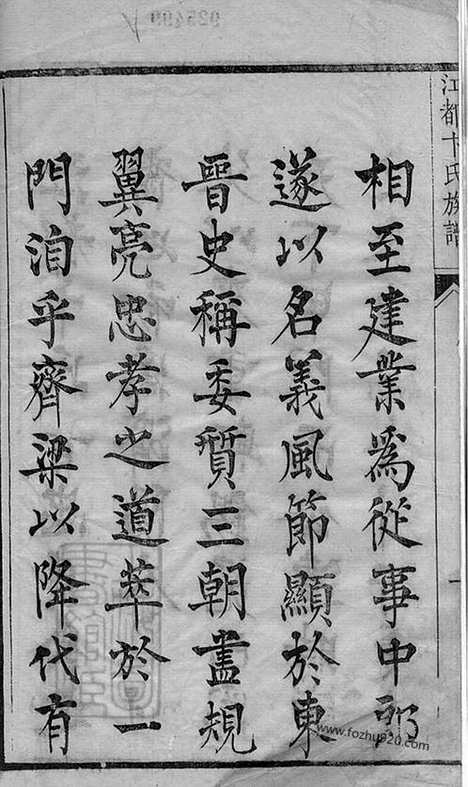 江都卞氏族譜
相至建業為從事中郎
遂以名義風節顯於東
晉史稱委質三朝盡規
翼亮忠孝之道萃於一
門洎乎齊梁以降代有
925499
www.fozhu920.com